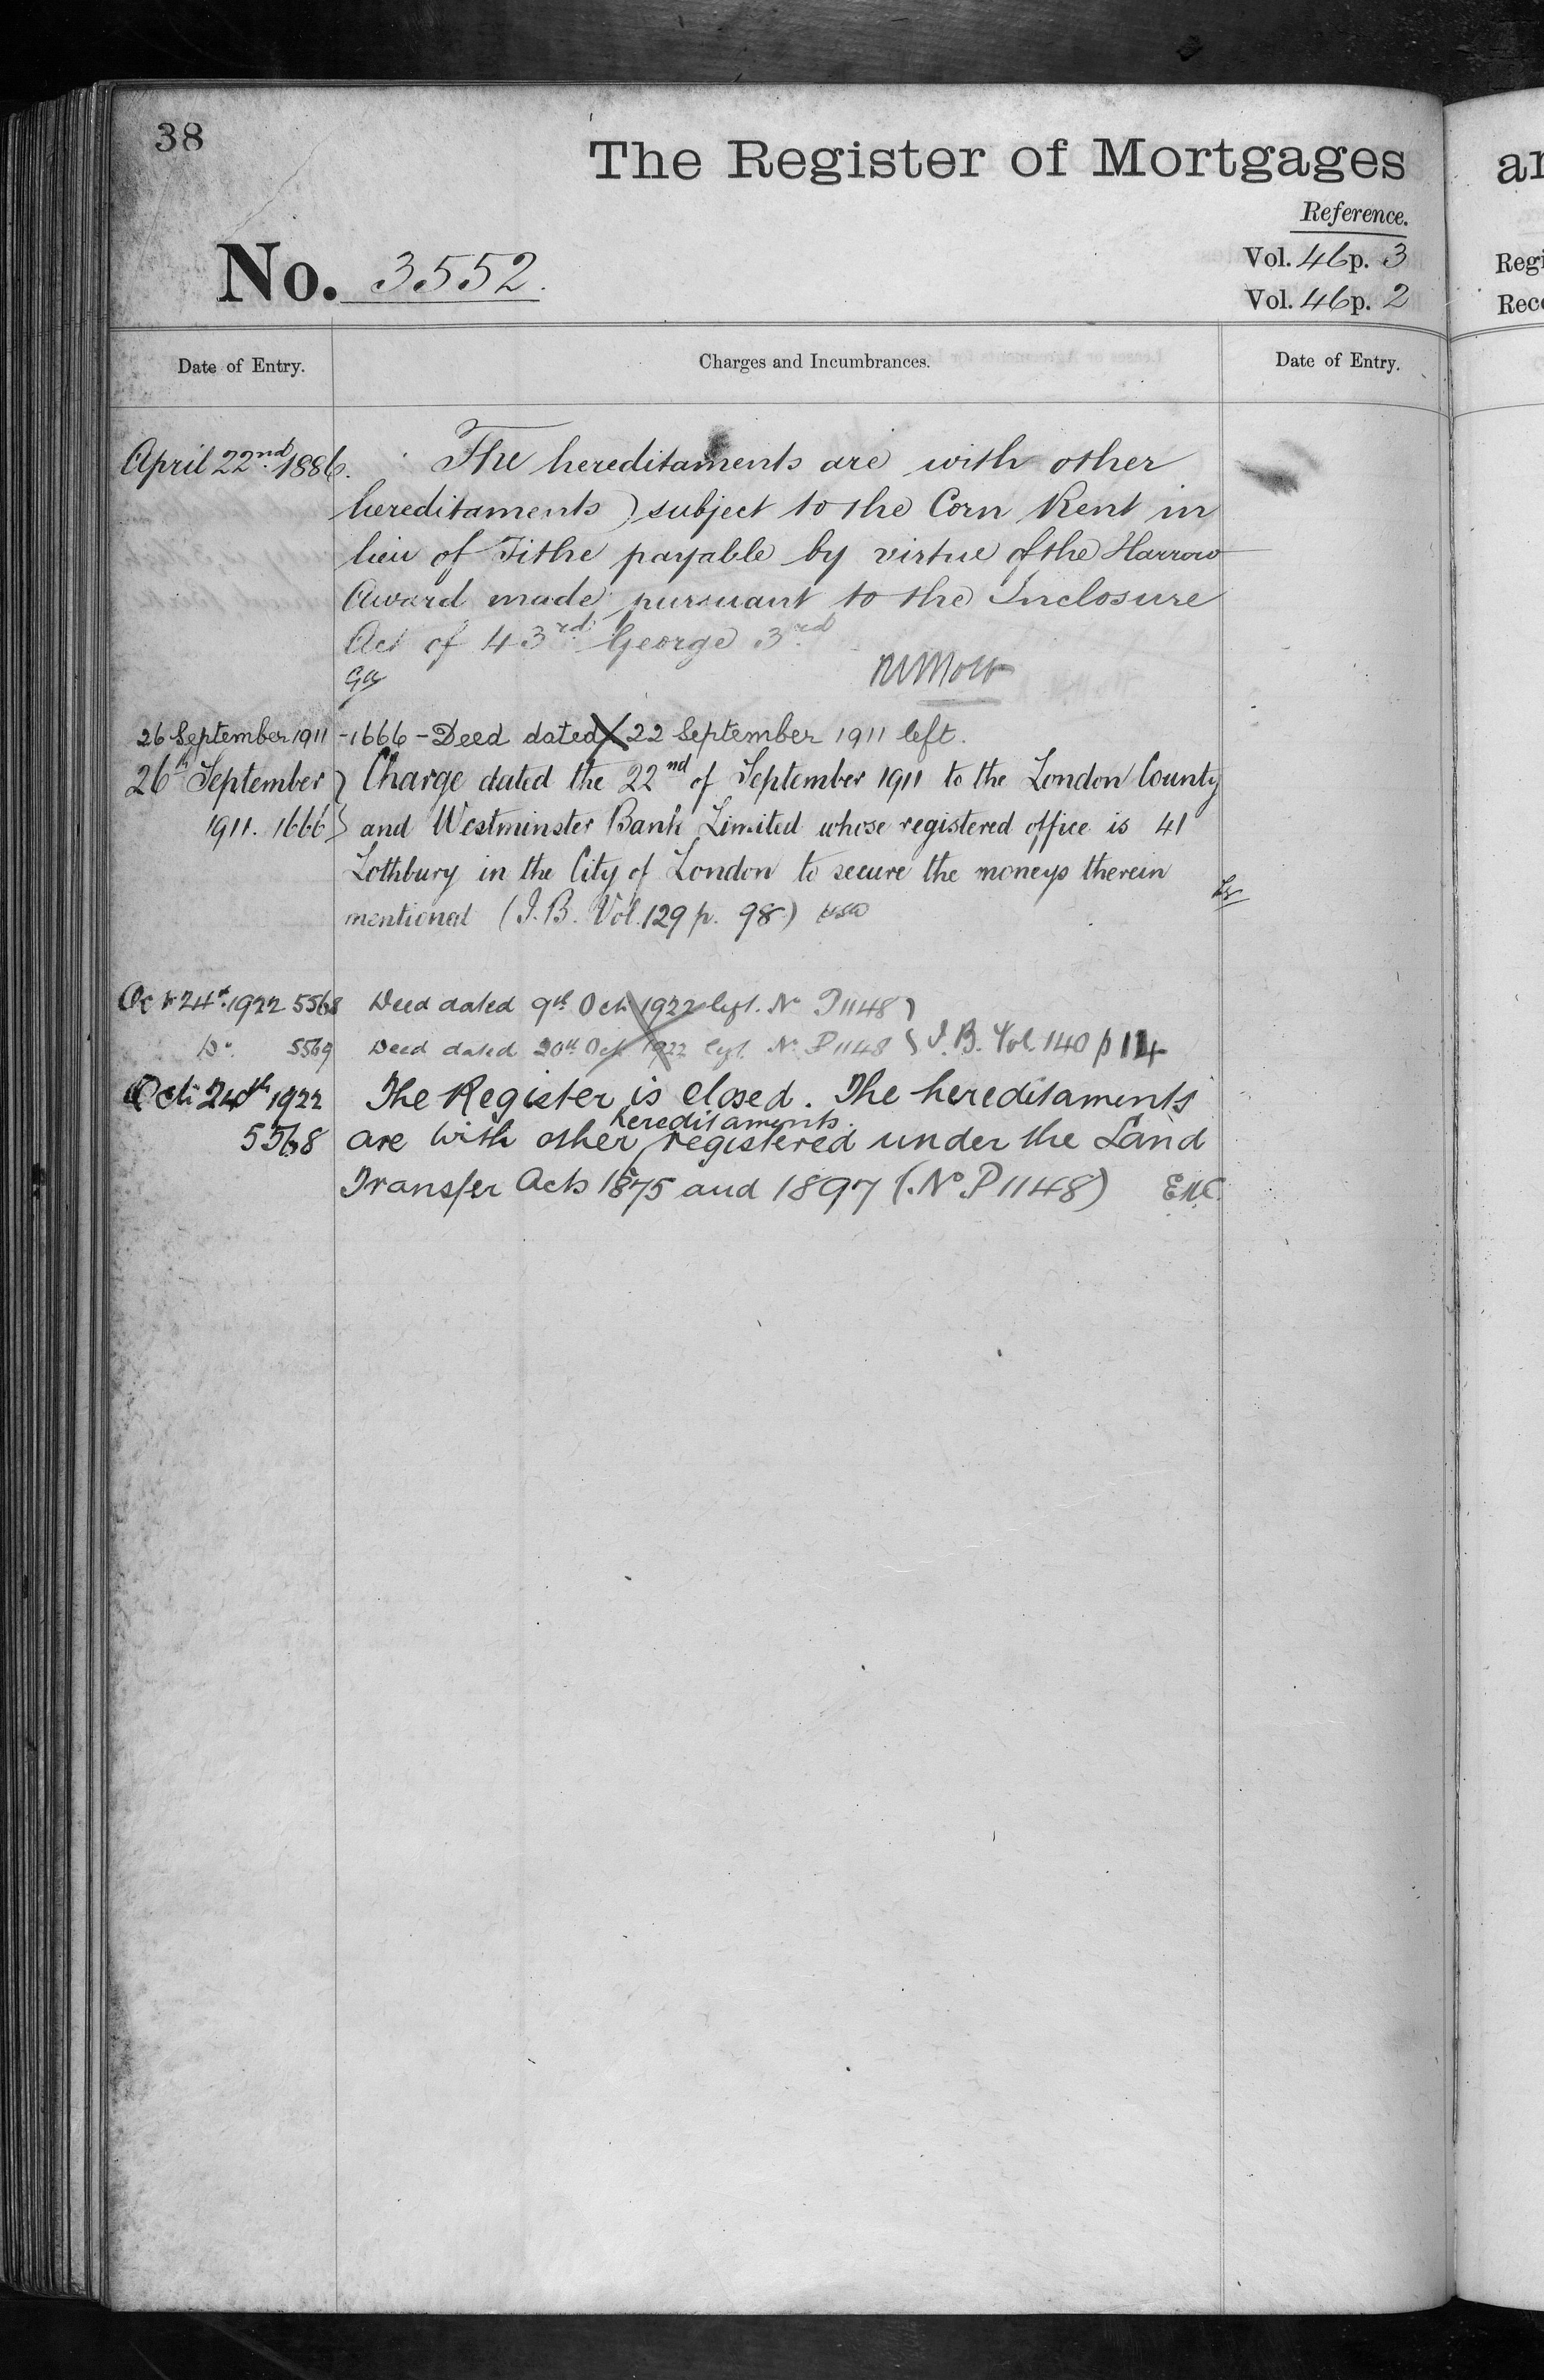 38
The Register of Mortgages
Reference.
No. 3552.
Vol. 46 p. 3
Vol. 46 p. 2
Date of Entry.
Charges and Incumbrances.
Date of Entry.
April 22nd 1886.
The hereditaments are with other
hereditaments) subject to the Corn Rent in
lieu of Tithe payable by virtue of the Harrow
Award made pursuant to the Inclosure
Act of 43rd George 3rd
26 September 1911 - 1666 - Deed dated 22 September 1911 left.
26th September } Charge dated the 22nd of September 1911 to the London County
1911. 1666 } and Westminster Bank Limited whose registered office is 41
Lothbury in the City of London to secure the moneys therein
mentioned (I.B. Vol. 129 p. 98)
Oct 24th 1922 5568 Deed dated 9th Oct 1922 left. No P1148 }
Do. 5569 Deed dated 20th Oct 1922 left. No P1148 } I.B. Vol. 140 p 114
Oct 24th 1922 The Register is closed. The hereditaments
hereditaments.
5568 are with other registered under the Land
Transfer Acts 1875 and 1897 (No P1148) EMC
an
Regi
Reco